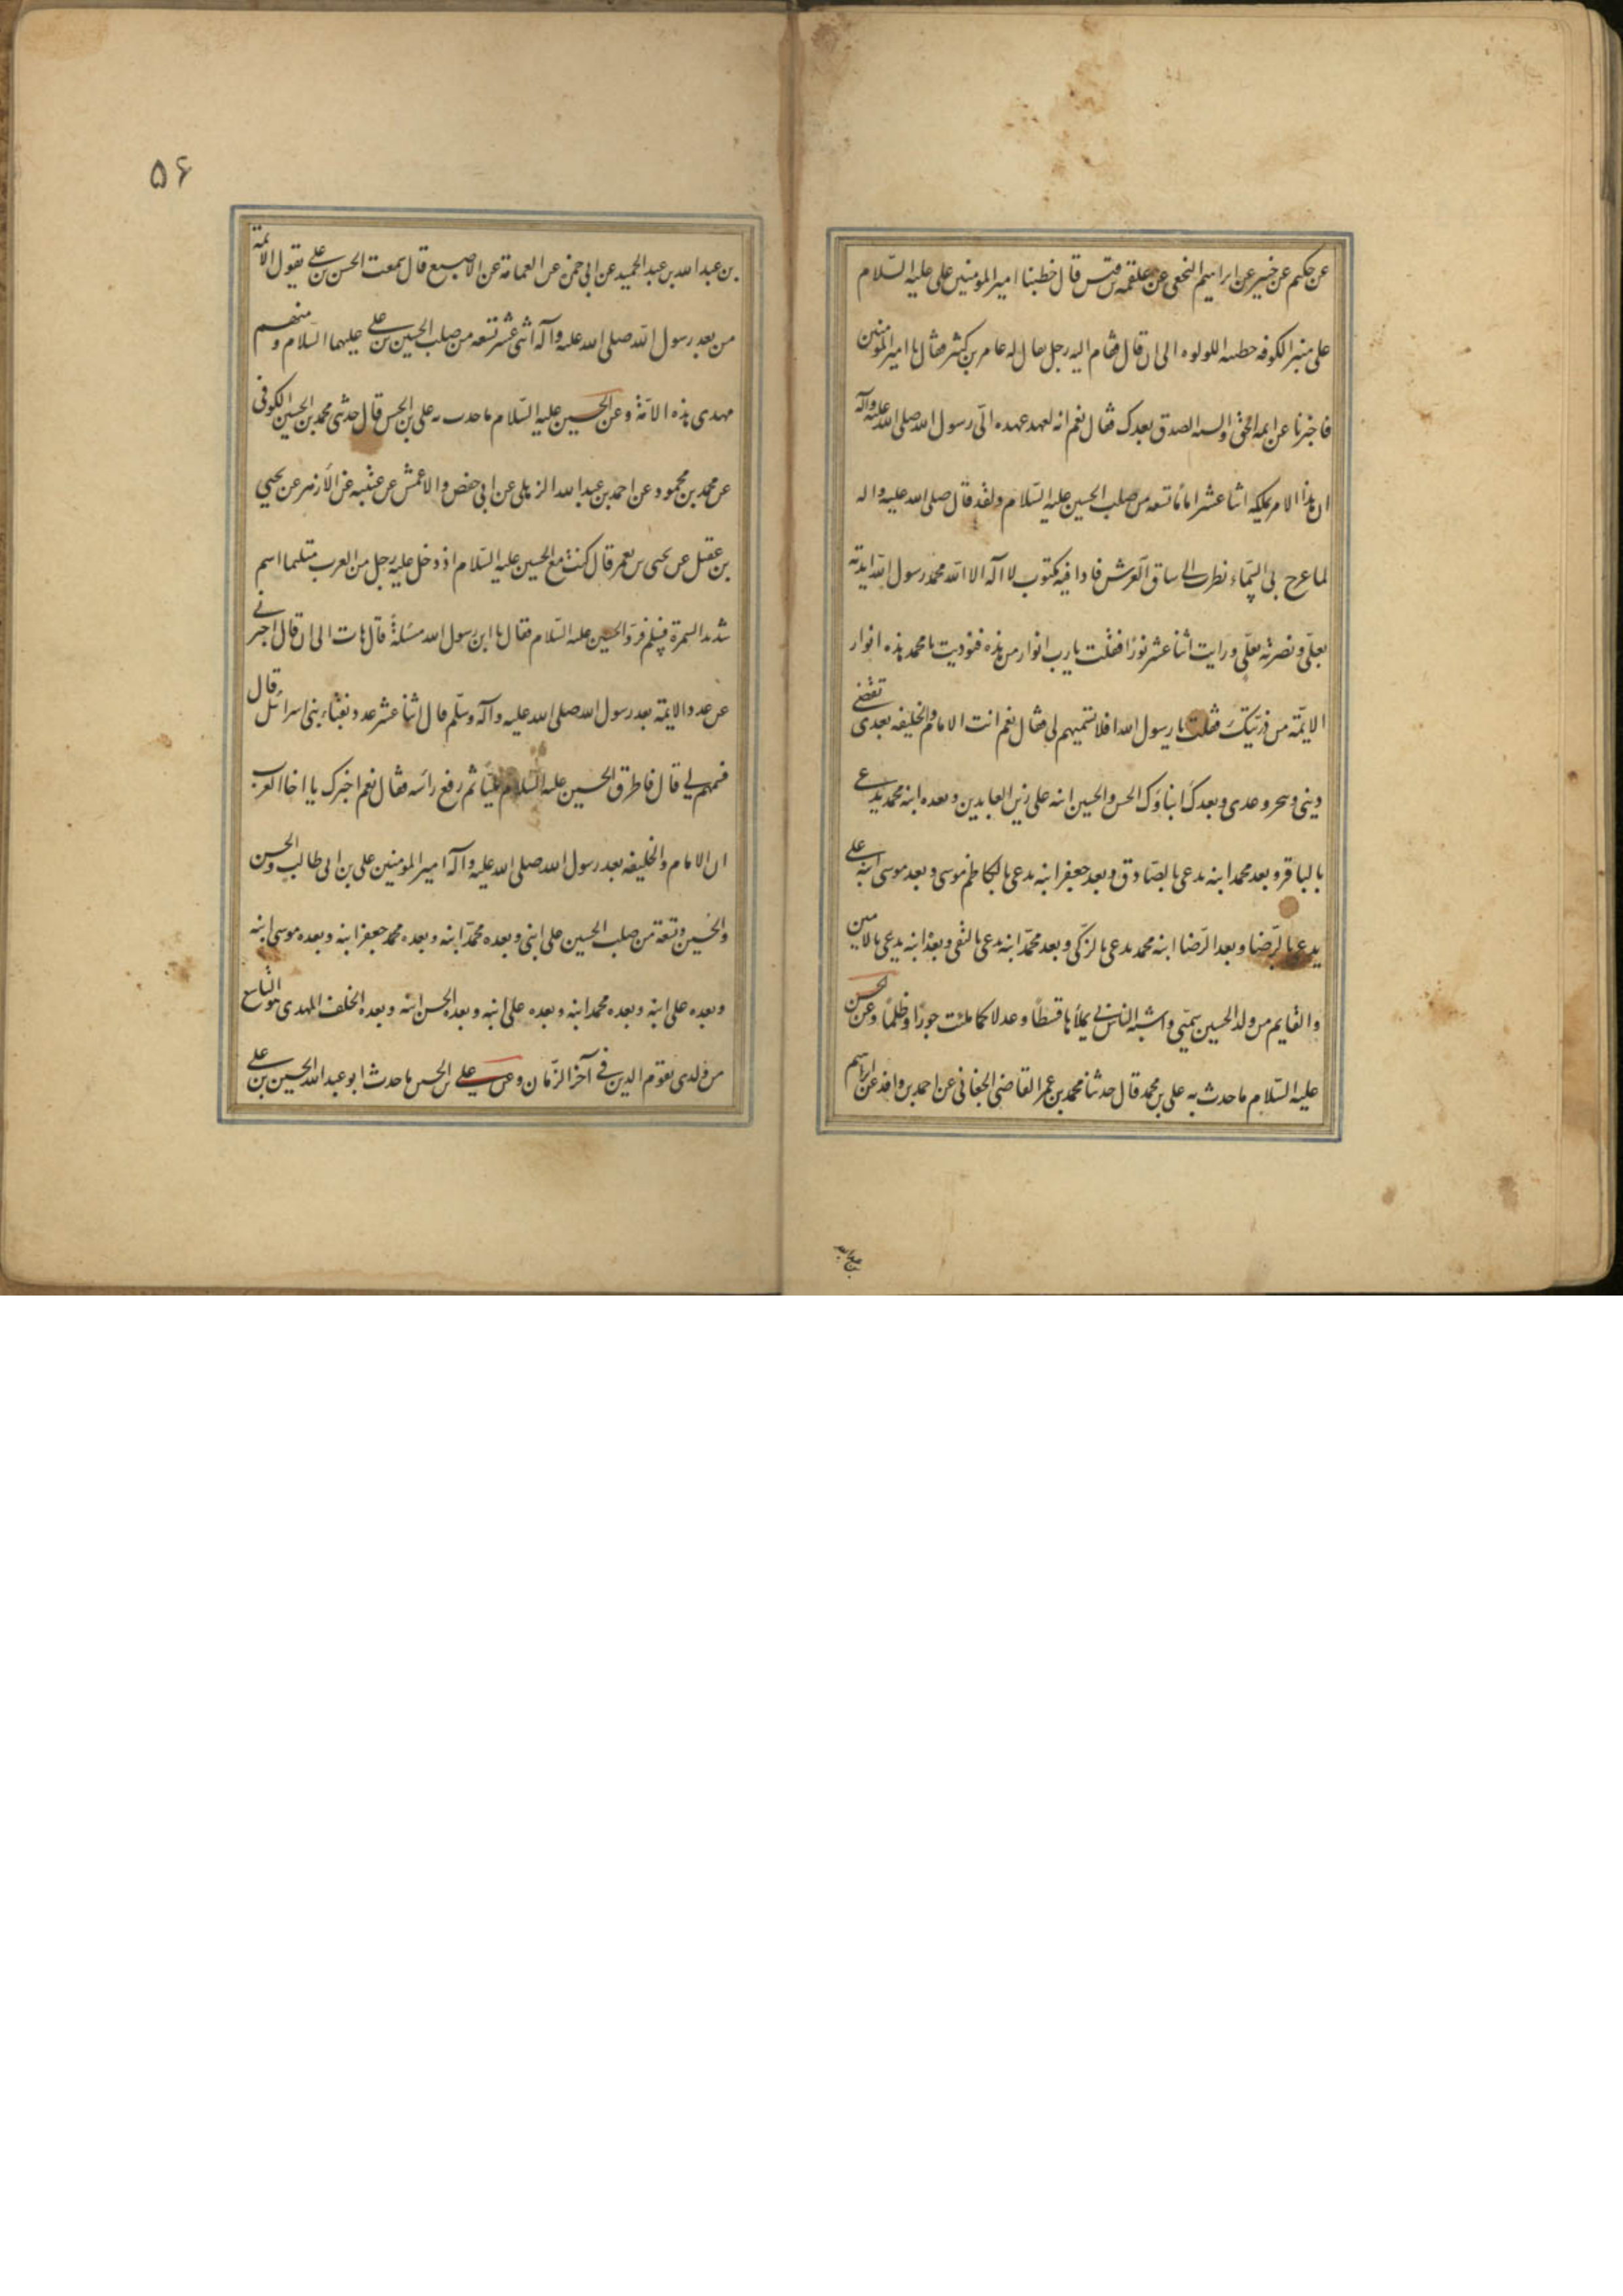 عن حكيم عن خبير عن ابراهيم النخعى عن علقمه بن قيس قال خطبنا امير المومنين على عليه السّلام
على منبر الكوفه خطبه اللولوه الى ان قال فقام اليه رجل يقال له عامر بن كثير فقال يا امير المومنين
فاخبرنا عن ايمه الحق والسنه الصدق بعدك فقال نعم انه لعهد عهده الىّ رسول الله صلى الله عليه وآله
ان هذا الامر يملكه اثنا عشر امامًا تسعه من صلب الحسين عليه السّلام ولقد قال صلى الله عليه واله
لما عرج بى الى السّماء نظرت الى ساق العرش فاذا فيه مكتوب لا اله الا الله محمد رسول الله ايدته
بعلىّ ونصرته بعلّى ورايت اثنا عشر نورًا فقلت يا رب انوار من هذه فنوديت يا محمد هذه انوار
الايمّة من ذرّيتك فقلت يا رسول الله افلا تسميهم لى فقال نعم انت الامام والخليفه بعدى تقضى
دينى وتنجز وعدى وبعدك ابناؤك الحسن والحسين ابنه على زين العابدين وبعده ابنه محمد يدعى
بالباقر وبعد محمد ابنه يدعى بالصّادق وبعد جعفر ابنه يدعى بالكاظم موسى وبعد موسى ابنه على
يدعى بالرّضا وبعد الرّضا ابنه محمد يدعى بالزكّى وبعد محمّد ابنه يدعى بالنقى وبعده ابنه يدعى بالامين
والقايم من ولد الحسين سمّيى واشبه الناس بى يملأها قسطًا وعدلا كما ملئت جورًا وظلمًا وعن الحسن
عليه السّلام ما حدث به على بن محمد قال حدثنا محمد بن عمر القاضى الجعابى عن احمد بن وافد عن ابراهيم
بن عبد الله بن عبد الحميد عن ابى حمزه عن العمامة عن الاصبع قال سمعت الحسن بن على يقول الائمة
من بعد رسول الله صلى الله عليه وآله اثنى عشر تسعه من صلب الحسين بن على عليهما السّلام ومنهم
مهدى هذه الامّة وعن الحسين عليه السّلام ما حدث به على بن الحسن قال حدثنى محمد بن الحسين الكوفى
عن محمد بن محمود عن احمد بن عبد الله الزبلى عن ابى حفص والاعمش عن عنبسه عن الأزهر عن يحيى
بن عقيل عن يحيى بن يعمر قال كنت مع الحسين عليه السّلام اذ دخل عليه رجل من العرب متلثما اسمر
شديد السمرة فسلم فردّ الحسين عليه السّلام فقال يا ابن رسول الله مسئلة قال هات الى ان قال اخبرنى
عن عدد الايمة بعد رسول الله صلى الله عليه وآله وسلّم قال اثنا عشر عدد نقباء بنى اسرائيل قال
فسمهم لى قال فاطرق الحسين عليه السلام مليّا ثم رفع رأسه فقال نعم اخبرك يا اخا العرب
ان الامام والخليفه بعد رسول الله صلى الله عليه وآله امير المومنين على بن ابى طالب والحسن
والحسين وتسعة من صلب الحسين على ابنى وبعده محمّد ابنه وبعده محمد جعفر ابنه وبعده موسى ابنه
وبعده على ابنه وبعده محمد ابنه وبعده على ابنه وبعده الحسن ابنه وبعده الخلف المهدى هو التاسع
من ولدى يقوم الدين فى آخر الزّمان وعن على بن الحسين ما حدث ابو عبد الله الحسين بن على
۵۶